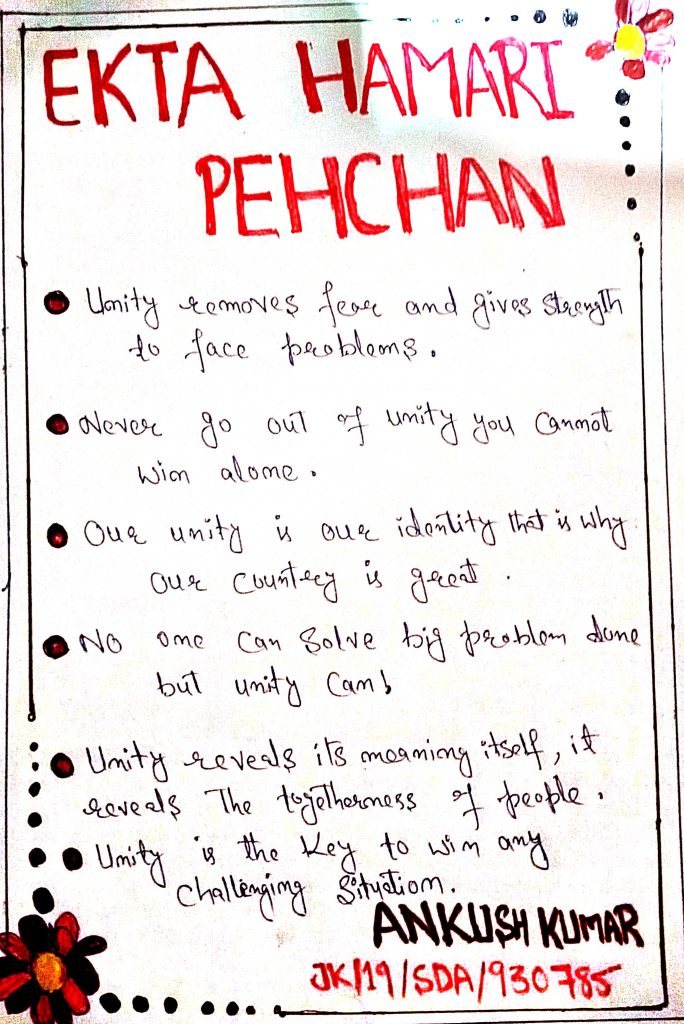 EKTA HAMARI
PEHCHAN
Unity removes fear and gives strength
to face problems.
Never go out of unity you cannot
win alone.
Our unity is our identity that is why
our country is great.
No one can solve big problem
but unity can!
Unity reveals its meaning itself, it
reveals The togetherness of people.
Unity is the key to win any
challenging situation.
ANKUSH KUMAR
JK/19/SDA/930785